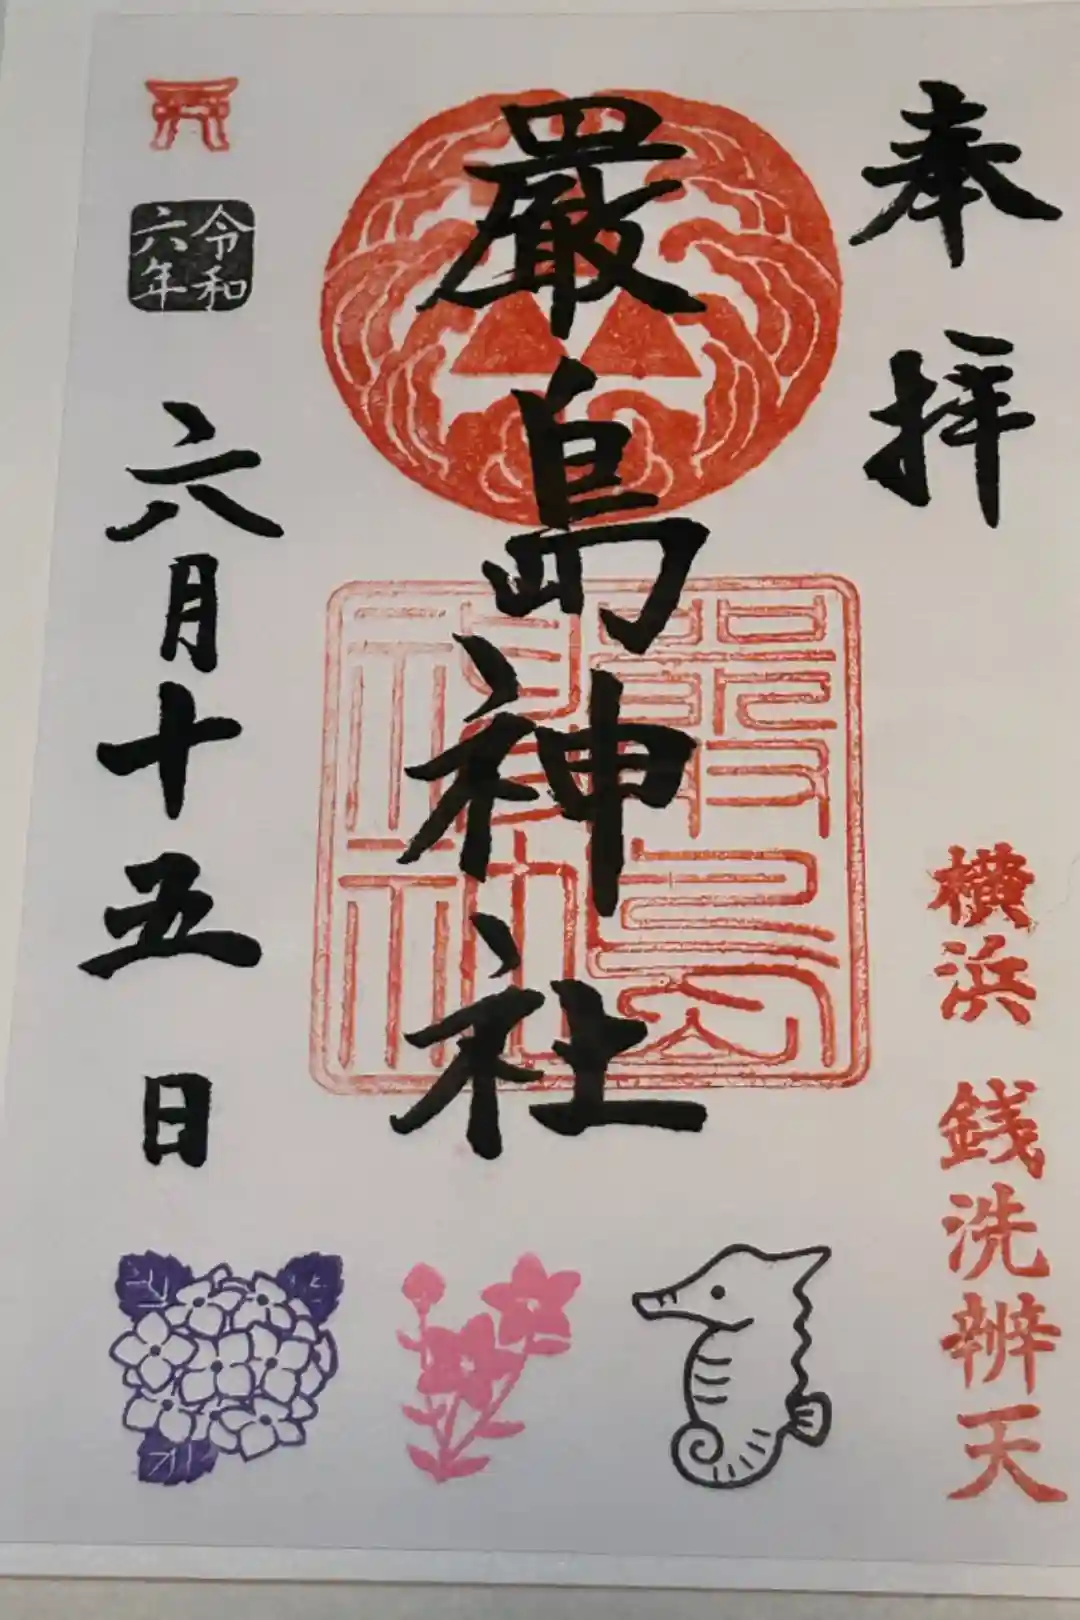 奉拝
横浜 銭洗辨天
嚴島神社
令和
六年
六月十五日